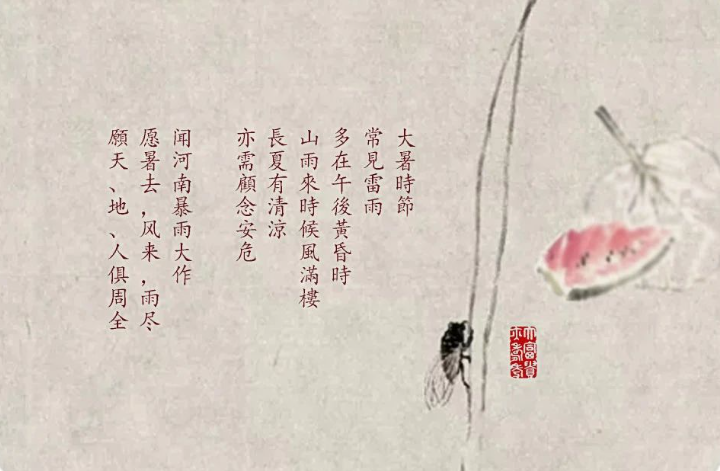 大暑時節
常見雷雨
多在午後黃昏時
山雨來時候風滿樓
長夏有清涼
亦需顧念安危
闻河南暴雨大作
愿暑去，风来，雨尽
願天、地、人俱周全